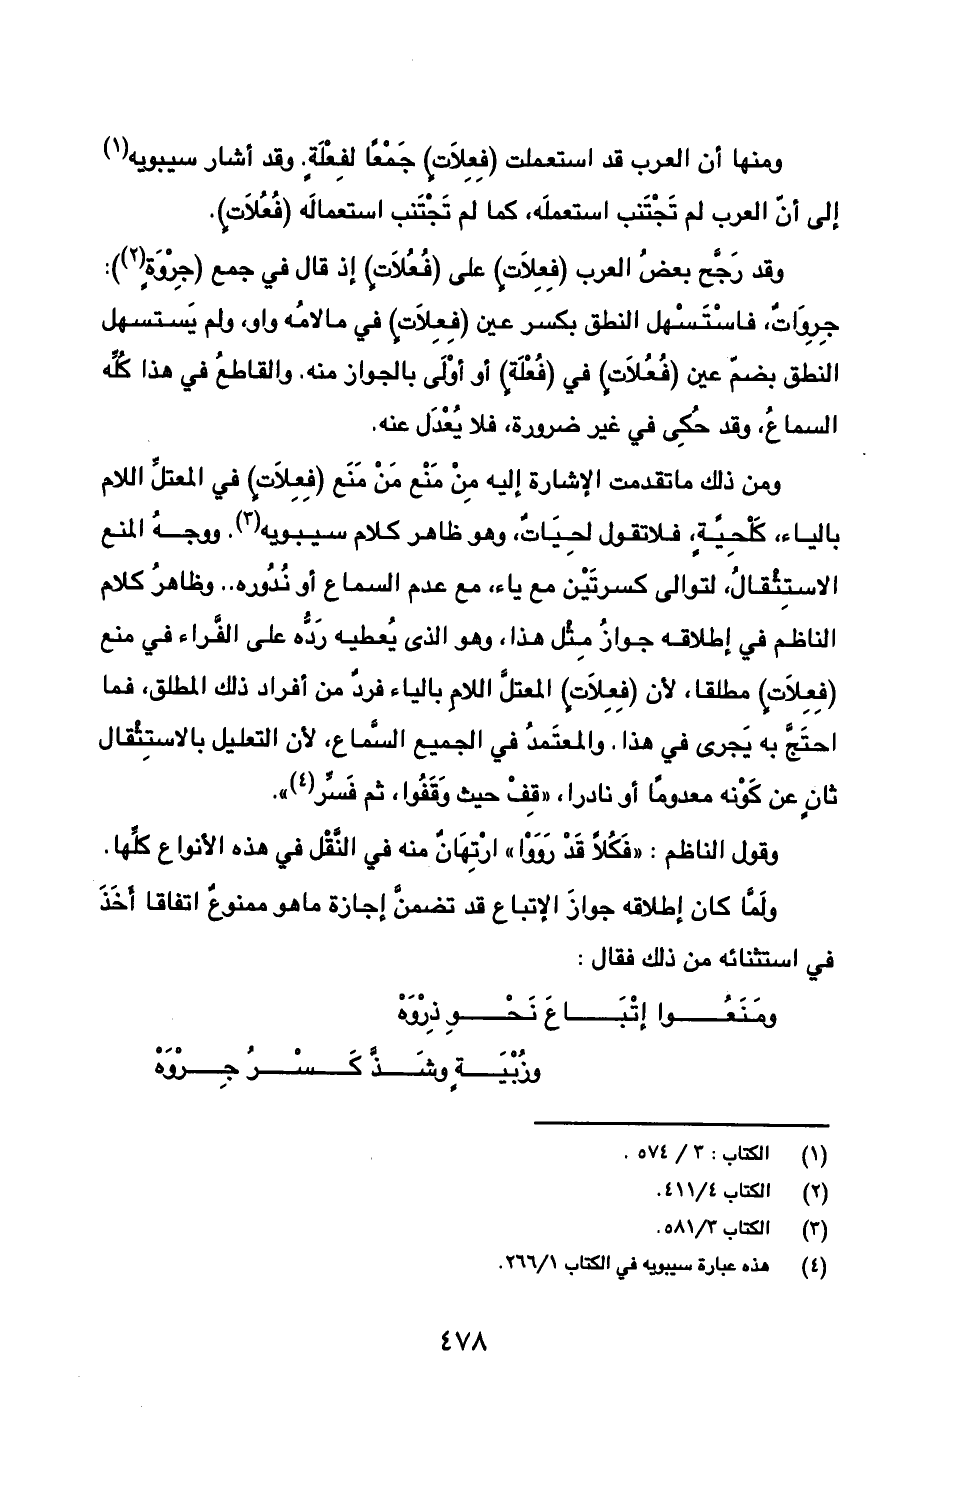 ومنها أن العرب قد استعملت (فِعِلاَت) جَمْعًا لفِعْلَةٍ. وقد أشار سيبويه(١)
إلى أنّ العرب لم تَجْتَنب استعملَه، كما لم تَجْتَنب استعمالَه (فُعُلاَتٍ).
وقد رَجَّح بعضُ العرب (فِعِلاَتٍ) على (فُعُلاَتٍ) إذ قال في جمع (جِرْوَةٍ(٢)):
جِرِوَاتٌ، فاسْتَسْهل النطق بكسر عين (فِعِلاَتٍ) في مالامُه واو، ولم يَستسهل
النطق بضمّ عين (فُعُلاَتٍ) في (فُعْلَةٍ) أو أوْلَى بالجواز منه. والقاطعُ في هذا كُلِّه
السماعُ، وقد حُكِى في غير ضرورة، فلا يُعْدَل عنه.
ومن ذلك ماتقدمت الإشارة إليه مِنْ مَنْع مَنْ مَنَع (فِعِلاَتٍ) في المعتلِّ اللام
بالياء، كَلْحِيَةٍ، فلاتقول لحِيَاتٌ، وهو ظاهر كلام سيبويه(٣). ووجهُ المنع
الاستِثْقالُ، لتوالى كسرتَيْن مع ياء، مع عدم السماع أو نُدُوره.. وظاهرُ كلام
الناظم في إطلاقه جوازُ مِثْل هذا، وهو الذى يُعطيه رَدُّه على الفَّراء في منع
(فِعِلاَتٍ) مطلقا، لأن (فِعِلاَتٍ) المعتلَّ اللامِ بالياء فردٌ من أفراد ذلك المطلق، فما
احتَجَّ به يَجرى في هذا. والمعتَمدُ في الجميع السَّماع، لأن التعليل بالاستِثْقال
ثانٍ عن كَوْنه معدومًا أو نادرا، «قِفْ حيث وَقَفُوا، ثم فَسِّرْ(٤)».
وقول الناظم : «فَكُلاً قَدْ رَوَوْا» ارْتِهَانٌ منه في النَّقْل في هذه الأنواع كلِّها.
ولَمَّا كان إطلاقه جوازَ الإتباع قد تضمنَّ إجازة ماهو ممنوعٌ اتفاقا أَخَذَ
في استثنائه من ذلك فقال :
ومَنَعُـــوا إتْبَـــاعَ نَحْـــوِ ذِرْوَهْ
وزُبْيَـــةٍ وشَـــذَّ كَـــسْـــرُ جِـــرْوَهْ
(١) الكتاب : ٣ / ٥٧٤ .
(٢) الكتاب ٤/٤١١.
(٣) الكتاب ٣/٥٨١.
(٤) هذه عبارة سيبويه في الكتاب ١/٢٦٦.
٤٧٨